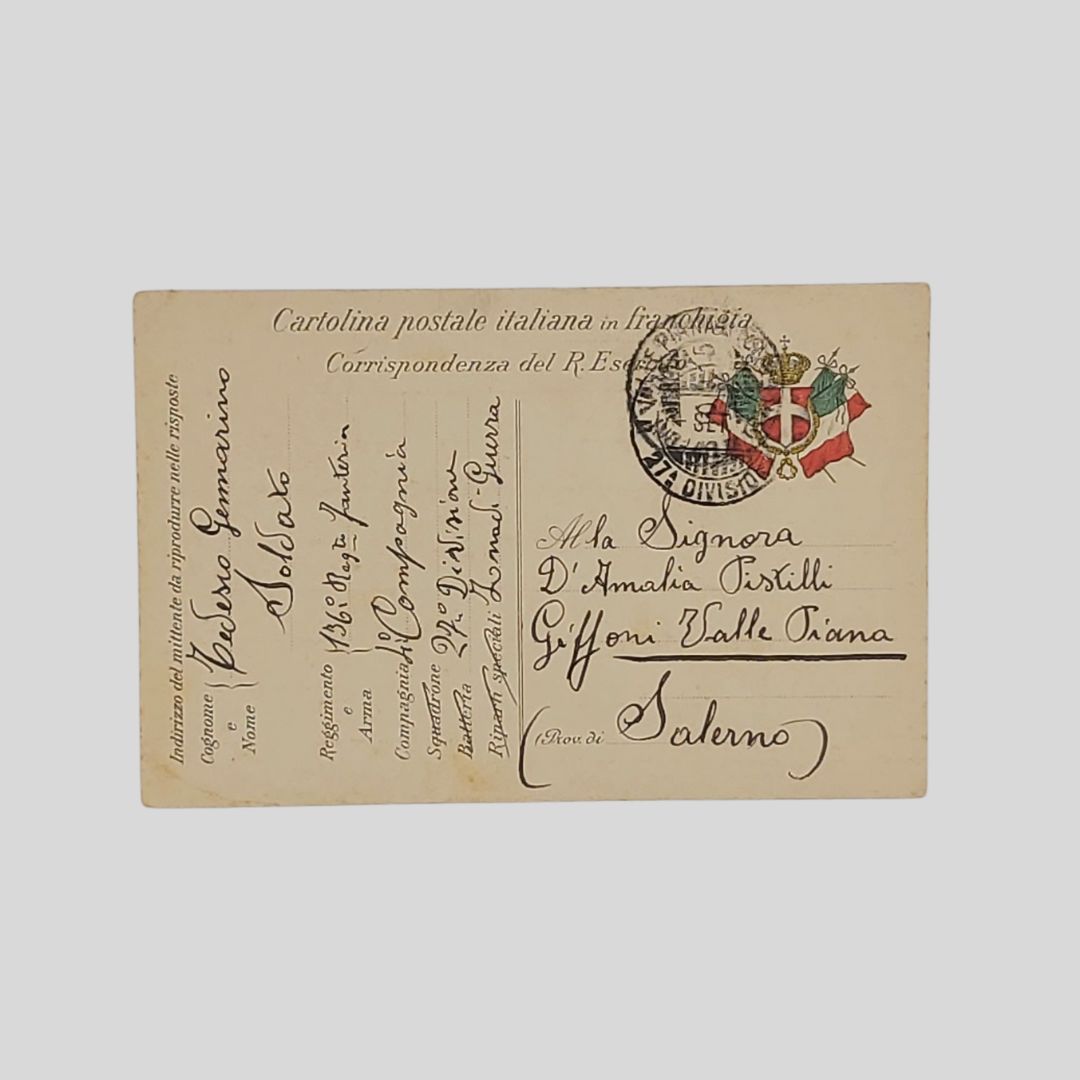 Cartolina postale italiana in franchigia
Corrispondenza del R. Esercito
Indirizzo del mittente da riprodurre nelle risposte
Cognome e Nome { Tedesco Gennarino
Soldato
Reggimento e Arma { 136° Regto Fanteria
Compagnia Compagnia
Squadrone
Batteria 27a Divisione
Riparti speciali Zona di Guerra
27A DIVISIO
SET
Alla Signora
D'Amalia Pistilli
Giffoni Valle Piana
(Prov. di Salerno)